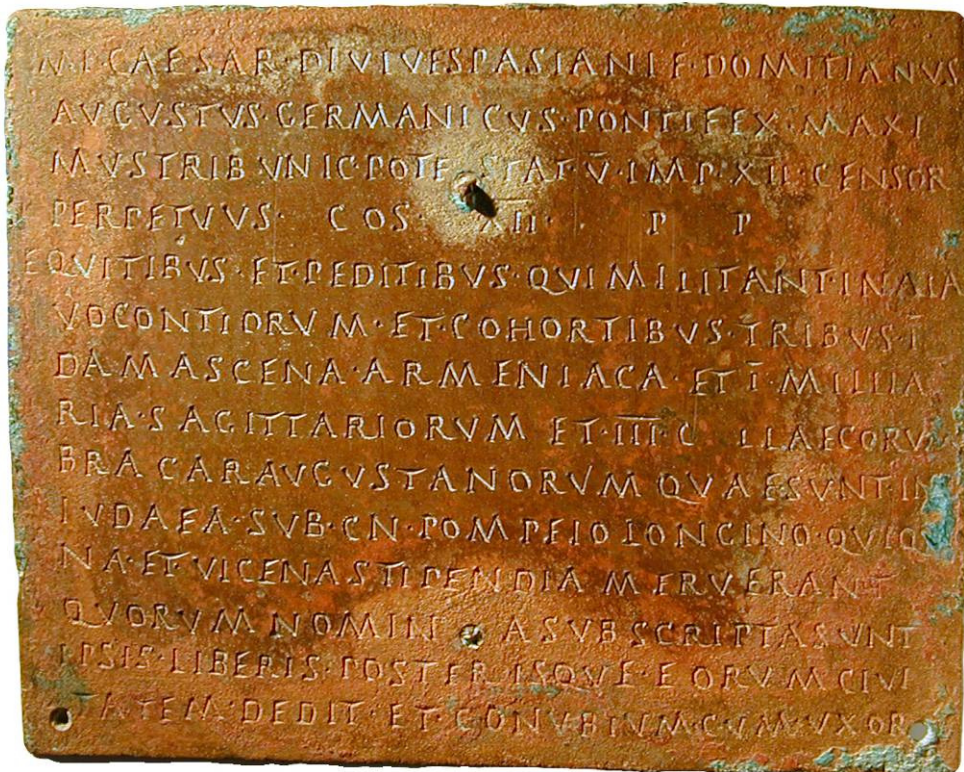 M·P·CAESAR·DIVI VESPASIANI F·DOMITIANVS
AVGVSTVS·GERMANICVS·PONTIFEX·MAXI
MVS TRIBVNIC·POTESTAT·V̄·IMP·XII·CENSOR
PERPETVVS· COS X̄II· P P
EQVITIBVS·ET·PEDITIBVS·QVI MILITANT·IN ALA
VOCONTIORVM·ET·COHORTIBVS·TRIBVS·Ī
DAMASCENA·ARMENIACA·ET·Ī·MILLIA
RIA·SAGITTARIORVM ET·I̅I̅I̅I̅·C LLAECORV
BRACARAVGVSTANORVM QVAE SVNT·IN
IVDAEA·SVB·CN·POMPEIO LONGINO·QVI QV
NA·ET·VICENA STIPENDIA MERVERANT
QVORVM NOMINA SVBSCRIPTA SVNT
IPSIS·LIBERIS·POSTERISQVE·EORVM CIVI
TATEM·DEDIT·ET·CONVBIVM·CVM VXOR